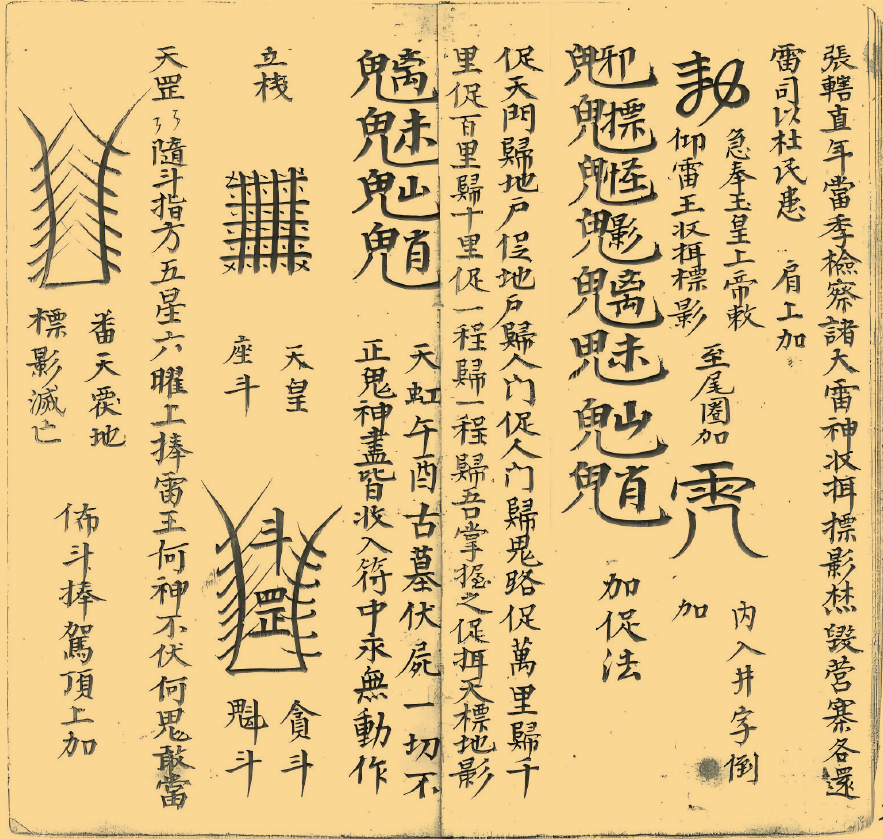 張轄直年當季檢察諸大雷神收捐標影㷊毀营寨各還
雷司以杜民患
肩上加
勅
急奉玉皇上帝敕
仰雷王收捐標影
至尾圈加
內入井字倒
加
邪標怪影离未山肖
加促法
促天門歸地戶促地戶歸人门促人门歸鬼路促萬里歸千
里促百里歸十里促一程歸一程歸吾掌握之促捐天標地影
魑魅
天虹午酉古墓伏屍一切不
正鬼神盡皆收入符中永無動作
立棧
天皇
座斗
斗罡
貪斗
魁斗
天罡以隨斗指方五星六曜上捧雷王何神不伏何鬼敢當
番天覆地
標影滅亡
佈斗捧駕頂上加